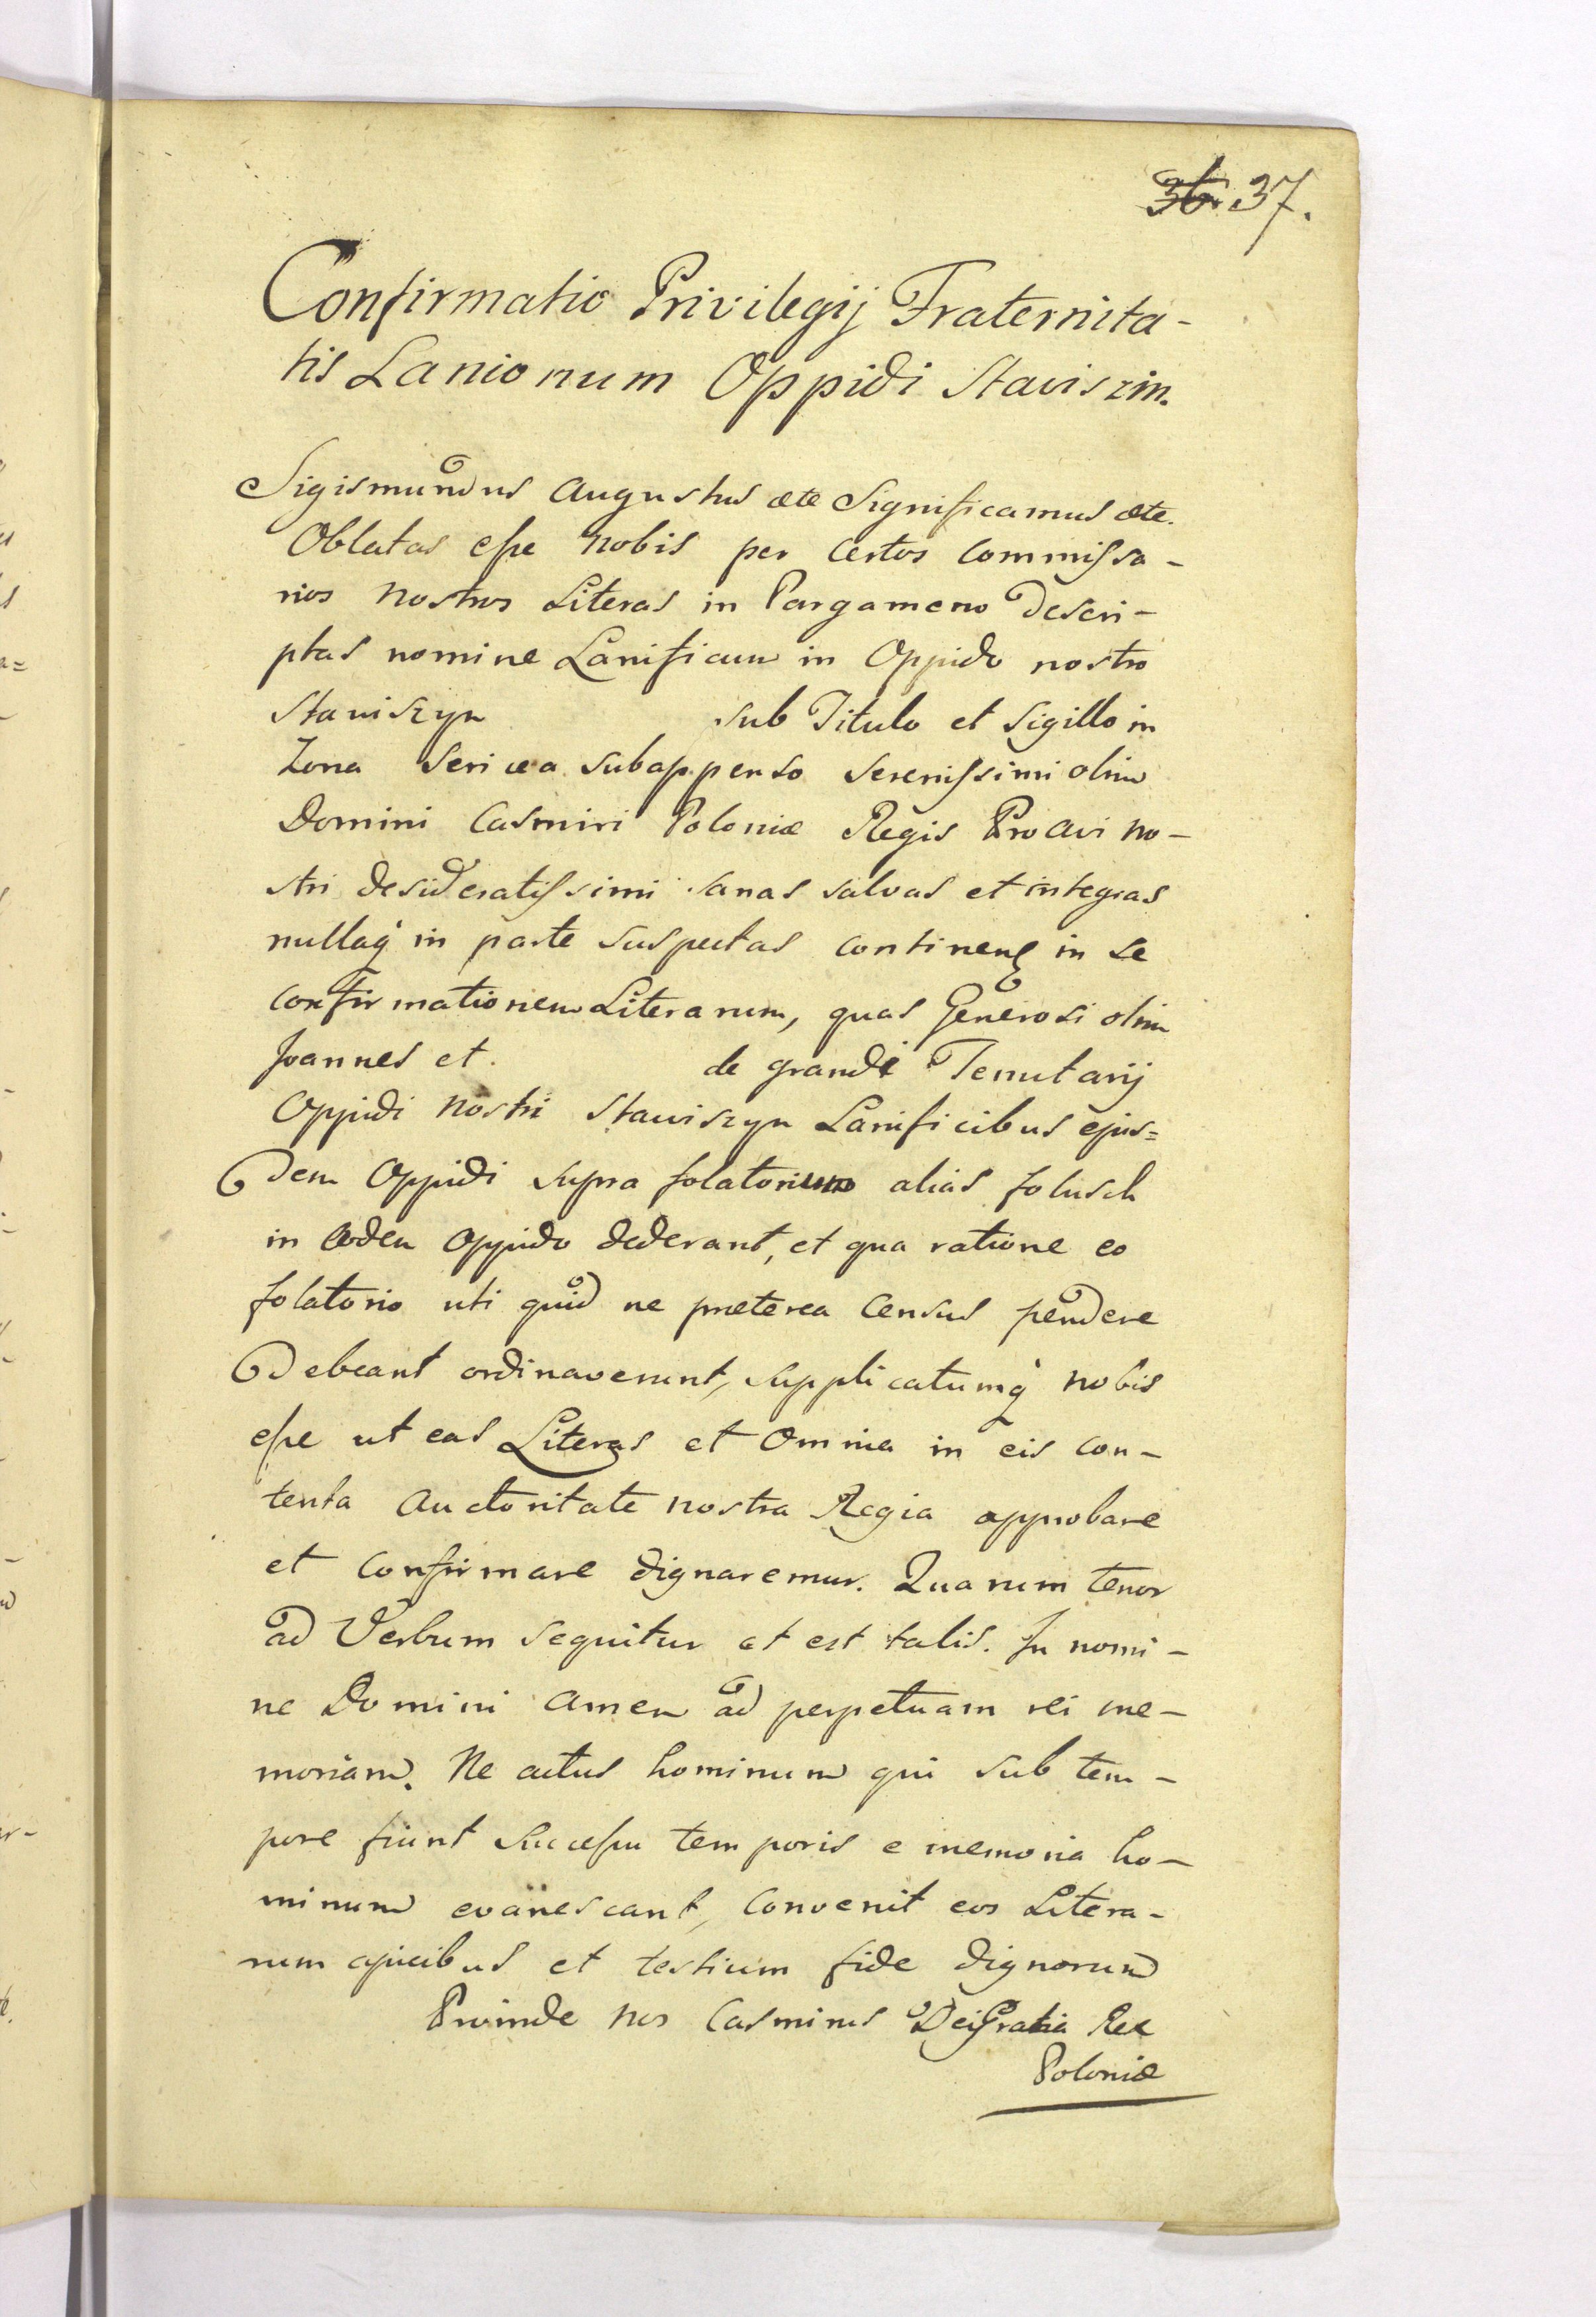 36. 37.
Confirmatio Privilegij Fraternita-
tis Lanionum Oppidi Staviszin.
Sigismundus Augustus ete Significamus ete.
Oblatas esse nobis per certos Commissa-
rios nostros Literas in Pargameno descri-
ptas nomine Lanificum in Oppido nostro
Staviszyn sub Titulo et Sigillo in
Zona Sericea subappenso Serenissimi olim
Domini Casmiri Poloniæ Regis Proavi no-
stri desideratissimi sanas salvas et integras
nullaq in parte suspectas continen in se
confirmationem Literarum, quas Generosi olim
Joannes et de grandi Tenutarij
Oppidi nostri Stawiszyn Lanificibus ejus=
dem Oppidi supra folatorium alias folusch
in eodem Oppido dederant, et qua ratione eo
folatorio uti quid ne præterea Census pendere
debeant ordinaverunt, supplicatumq nobis
esse ut eas Literas et Omnia in eis con-
tenta Auctoritate nostra Regia approbare
et confirmare dignaremur. Quarum tenor
ad Verbum sequitur et est talis. In nomi-
ne Domini Amen ad perpetuam rei me-
moriam. Ne actus hominum qui sub tem-
pore fiunt successu temporis e memoria ho-
minum evanescant, convenit eos Litera-
rum apicibus et testium fide dignorum
Proinde nos Casmirus Dei Gratia Rex
Poloniæ